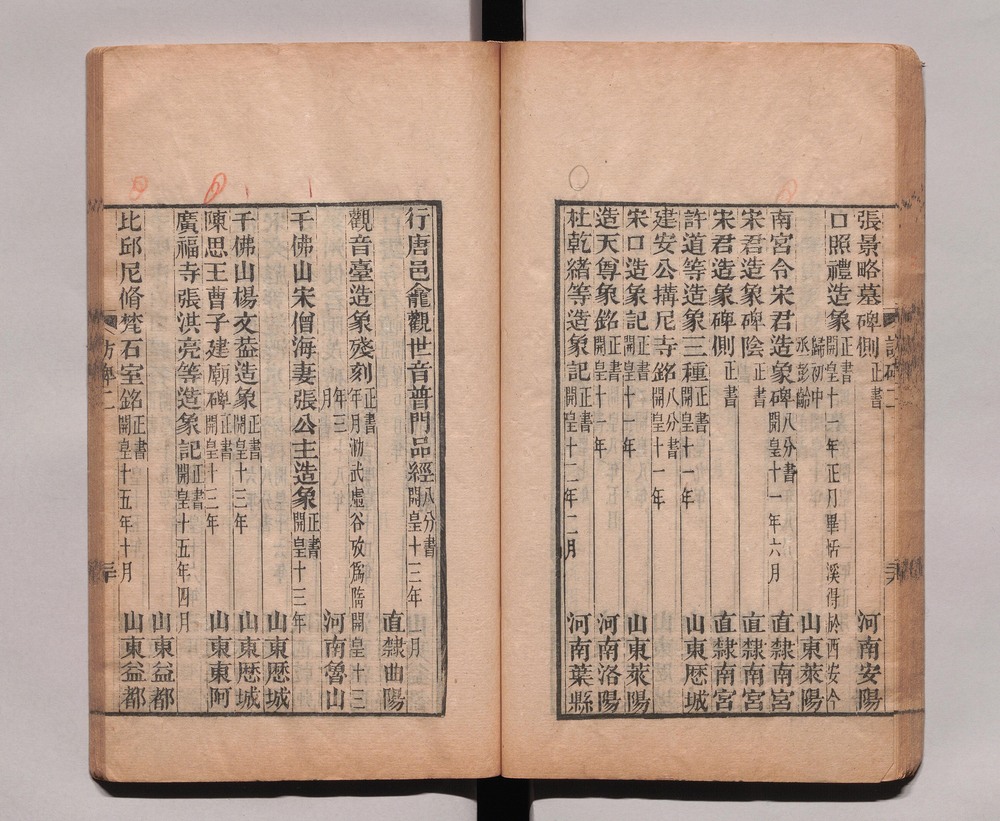 張景略墓碑側 正書 河南安陽
口照禮造象 正書 開皇十一年正月畢恬溪得於西安今歸初中丞彭齡 山東萊陽
南宮令宋君造象碑 八分書 開皇十一年六月 直隸南宮
宋君造象碑陰 正書 直隸南宮
宋君造象碑側 正書 直隸南宮
許道等造象三種 正書 開皇十一年 山東歷城
建安公搆尼寺銘 八分書 開皇十一年
宋口造象記 正書 開皇十一年 山東萊陽
造天尊象銘 正書 開皇十一年 河南洛陽
杜乾緒等造象記 正書 開皇十二年二月 河南葉縣
行唐邑龕觀世音普門品經 八分書 開皇十三年 月 直隸曲陽
觀音臺造象殘刻 正書 年月泐武虛谷攷爲隋開皇十三年 河南魯山
千佛山宋僧海妻張公主造象 正書 開皇十三年 山東歷城
千佛山楊文葢造象 正書 開皇十三年 山東歷城
陳思王曹子建廟碑 正書 開皇十三年 山東東阿
廣福寺張洪亮等造象記 正書 開皇十五年四月 山東益都
比邱尼脩梵石室銘 正書 開皇十五年十月 山東益都